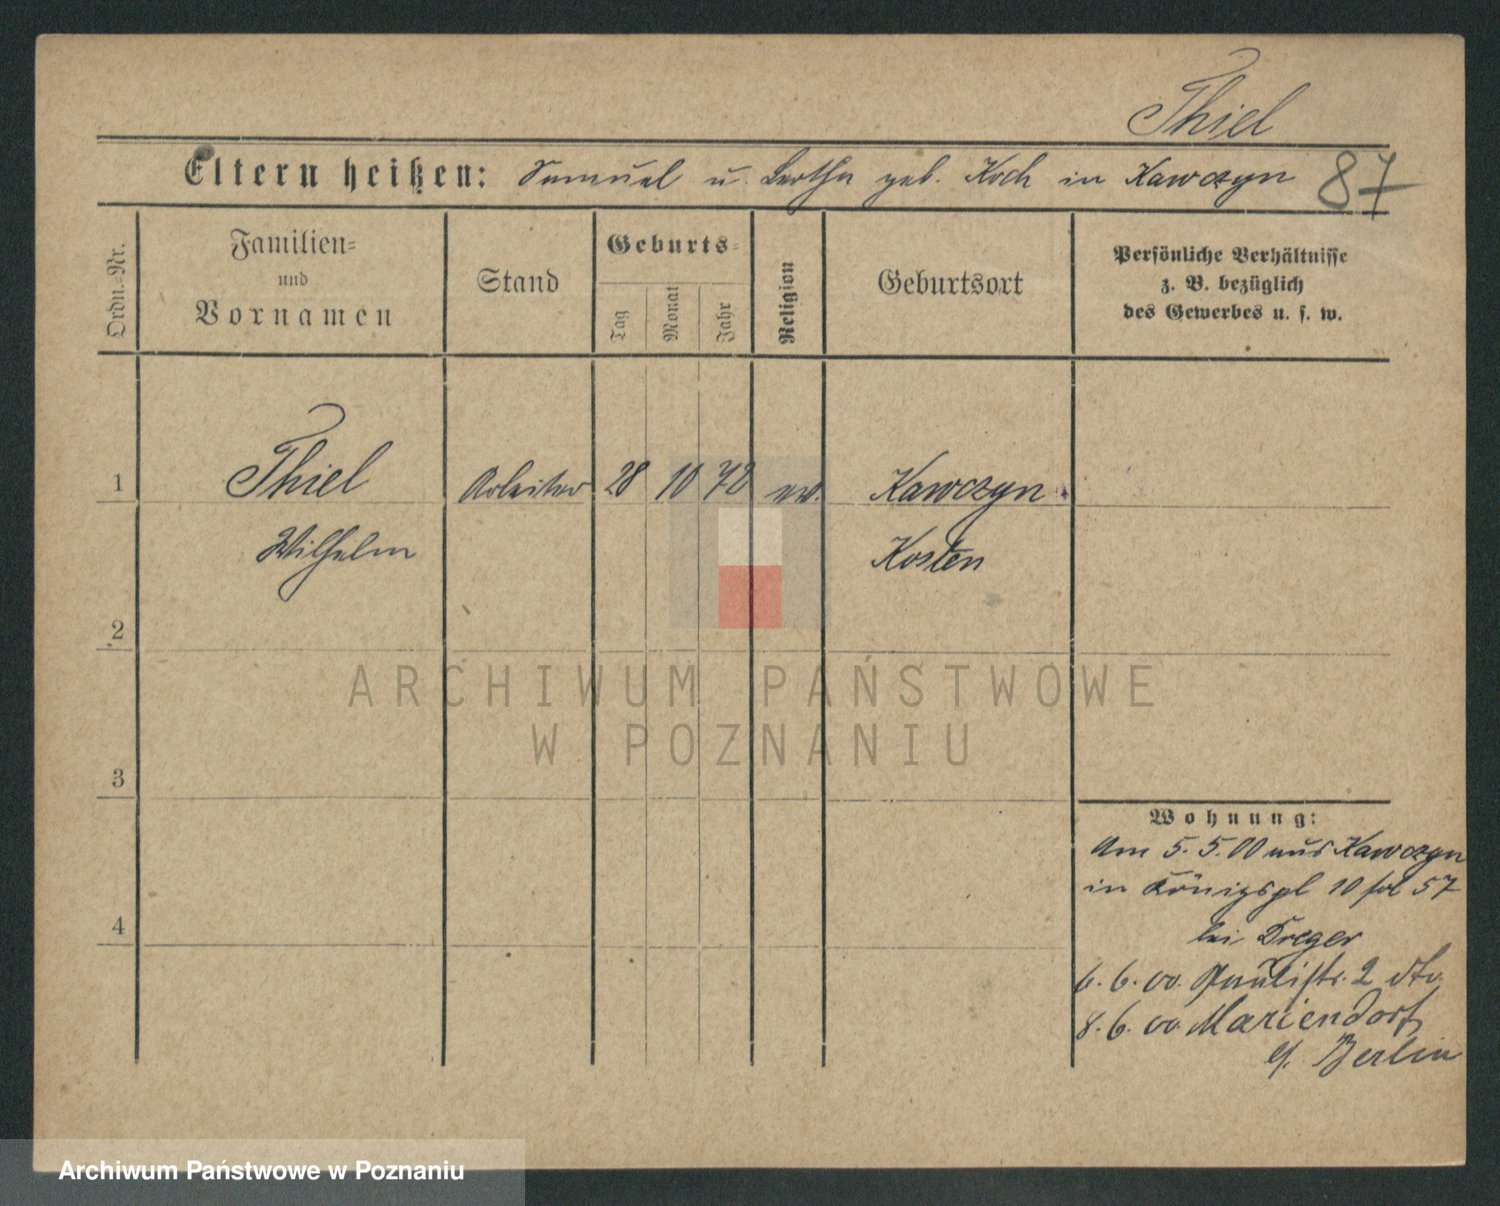 Thiel
Eltern heißen: Samuel u. Bertha geb. Koch in Kawczyn
87
Ordn.-Nr.
Familien-
und
Vornamen
Stand
Geburts-
Tag
Monat
Jahr
Religion
Geburtsort
Persönliche Verhältnisse
z. B. bezüglich
des Gewerbes u. s. w.
1 Thiel Arbeiter 28 10 72 ev. Kawczyn
Wilhelm Kosten
2
ARCHIWUM PAŃSTWOWE
W POZNANIU
3
Wohnung:
Am 5.5.00 aus Kawczyn
in Königspl 10 57
4
bei Dreger
6.6.00. Paulistr. 2
8.6.00 Mariendorf
Berlin
Archiwum Państwowe w Poznaniu